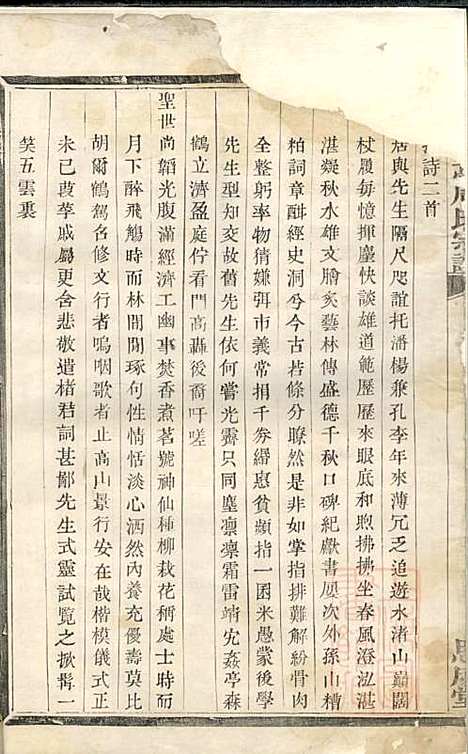 詩二首
居與先生隔尺咫誼托潘楊兼孔李年來薄冗乏追遊水渚山巔闊
杖履每憶揮麈快談雄道範歷歷來眼底和煦拂拂坐春風澄泓湛
湛凝秋水雄文膾炙藝林傳盛德千秋口碑紀獻書屢次外孫山糟
粕詞章酣經史洞兮今古若條分瞭然是非如掌指排難解紛骨肉
全整躬率物猜嫌弭市義常捐千劵緡惠貧顯指一囷米愚蒙後學
先生型知交故舊先生依何嘗光霽只同塵凛凛霜雷靖宄姦亭森
鶴立濟盈庭佇看門高轟後裔吁嗟
聖世尚韜光腹滿經濟工幽事焚香煮茗號神仙種柳栽花稱處士時而
月下醉飛觴時而林間閒琢句性情恬淡心洒然內養充優壽莫比
胡爾鶴駕名修文行者嗚咽歌者止高山景行安在哉楷模儀式正
未已葭莩戚屬更含悲敬遣楮君詞甚鄙先生式靈試覧之掀髯一
笑五雲裏